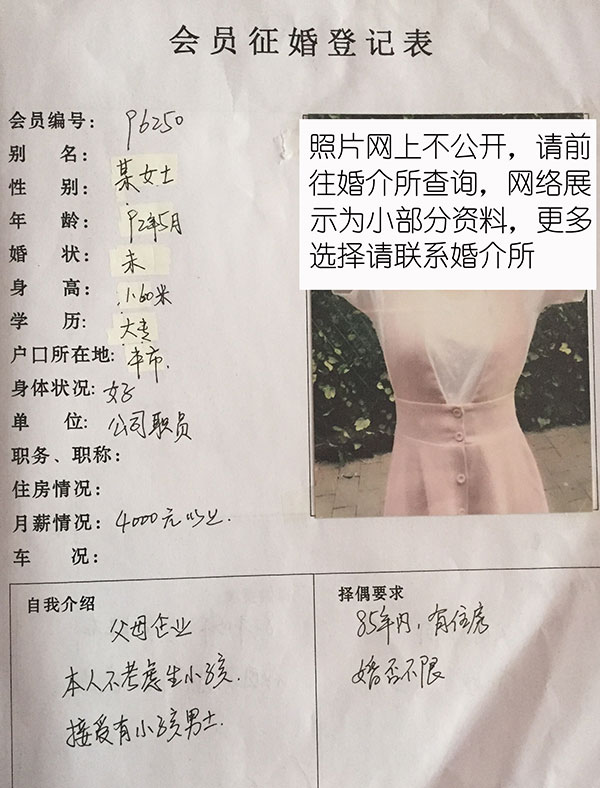 会员征婚登记表
会员编号: 96250
别 名:
性 别: 某女士
年 龄: 92年5月
婚 状: 未
身 高: 1.60米
学 历: 大专
户口所在地: 本市.
身体状况: 好
单 位: 公司职员
职务、职称:
住房情况:
月薪情况: 4000元以上.
车 况:
照片网上不公开，请前
往婚介所查询，网络展
示为小部分资料，更多
选择请联系婚介所
自我介绍
父母企业
本人不考虑生小孩.
接受有小孩男士.
择偶要求
85年内，有住房
婚否不限